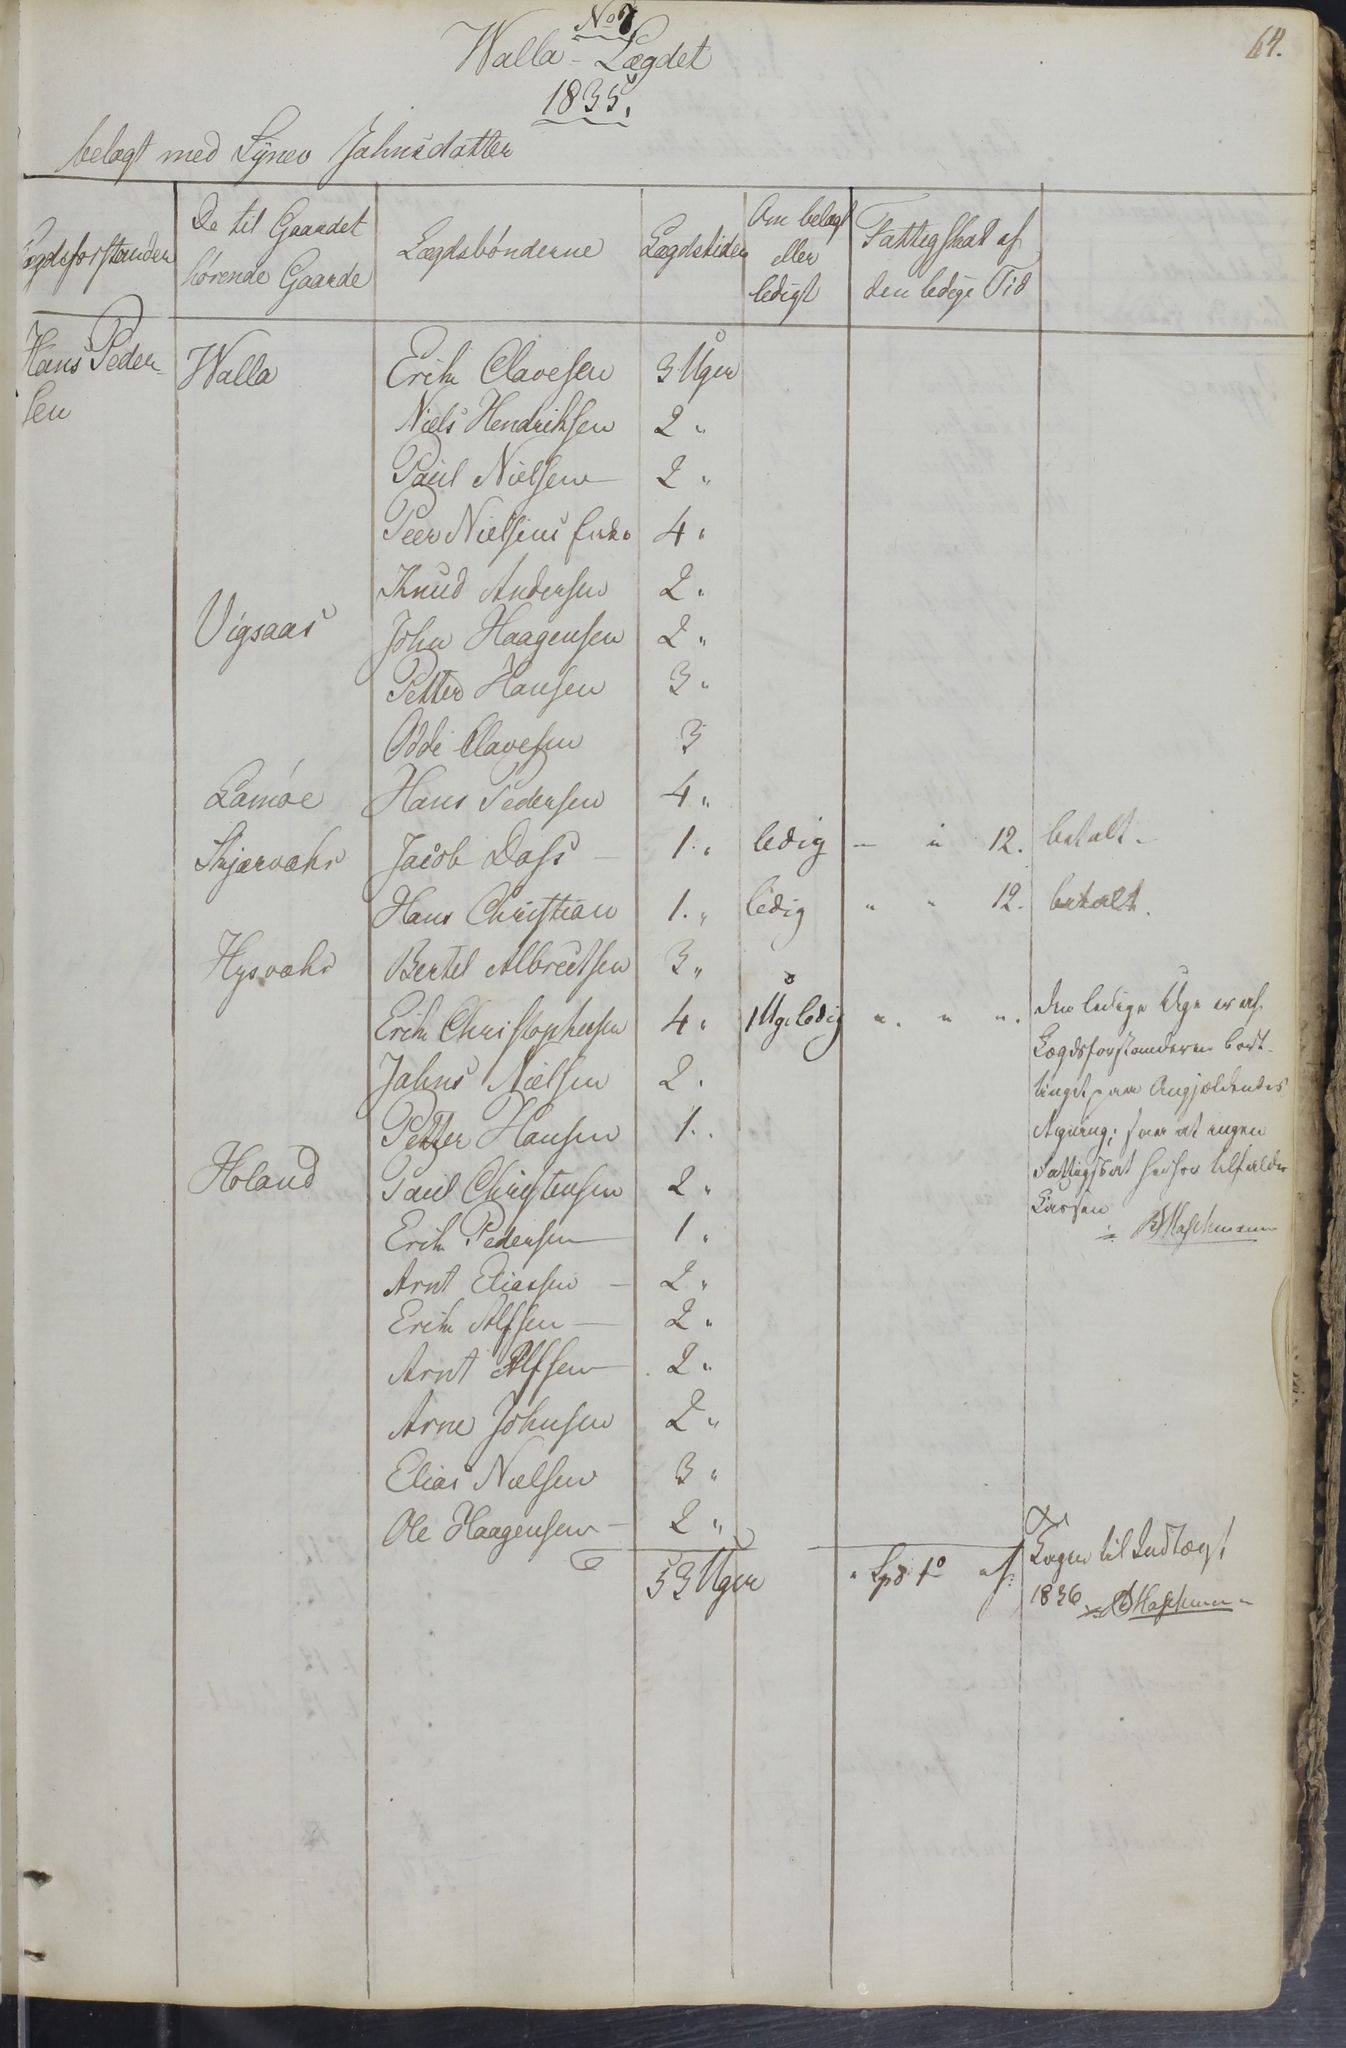 No 7
64.
Walla - Lægdet
1835.
belagt med Synev Jahnsdatter
Lægdsforstander
De til Gaardet hørende Gaarde
Lægdsbønderne
Lægdstiden
Om belagt eller ledigt
Fattigskat af den ledige Tid
Hans Peder-
sen
Walla Erik Clavesen 3 Uger
Niels Hendriksen 2 "
Paul Nielsen 2 "
Peer Nielsens Enke 4 "
Knud Andersen 2 "
Vigsaas John Haagensen 2 "
Petter Hansen 3 "
Odde Clavesen 3
Lamøe Hans Pedersen 4 "
Skjærvahr Jacob Dass - 1 " ledig - " 12. betalt -
Hans Christian 1. " ledig " " 12. betalt.
Hysvahr Bertel Albreetsen 3 "
Erik Christophersen 4 " 1 Uge ledig " " "
den ledige Uge er af
Lægdsforstanderen bort-
tinget paa Angjældendes
Regning; saa at ingen
Fattigskat herfor tilfalder
Kassen
Jahns Nielsen 2 "
Petter Hansen 1 "
Holand Paul Christensen 2 "
Erik Pedersen 1 "
Arnt Eliassen - 2 "
Erik Alfsen - 2 "
Arnt Alfsen 2 "
Arne Johnsen 2 "
Elias Nielsen 3 "
Ole Haagensen - 2 "
53 Uger
Tagen til Indtægt
1836